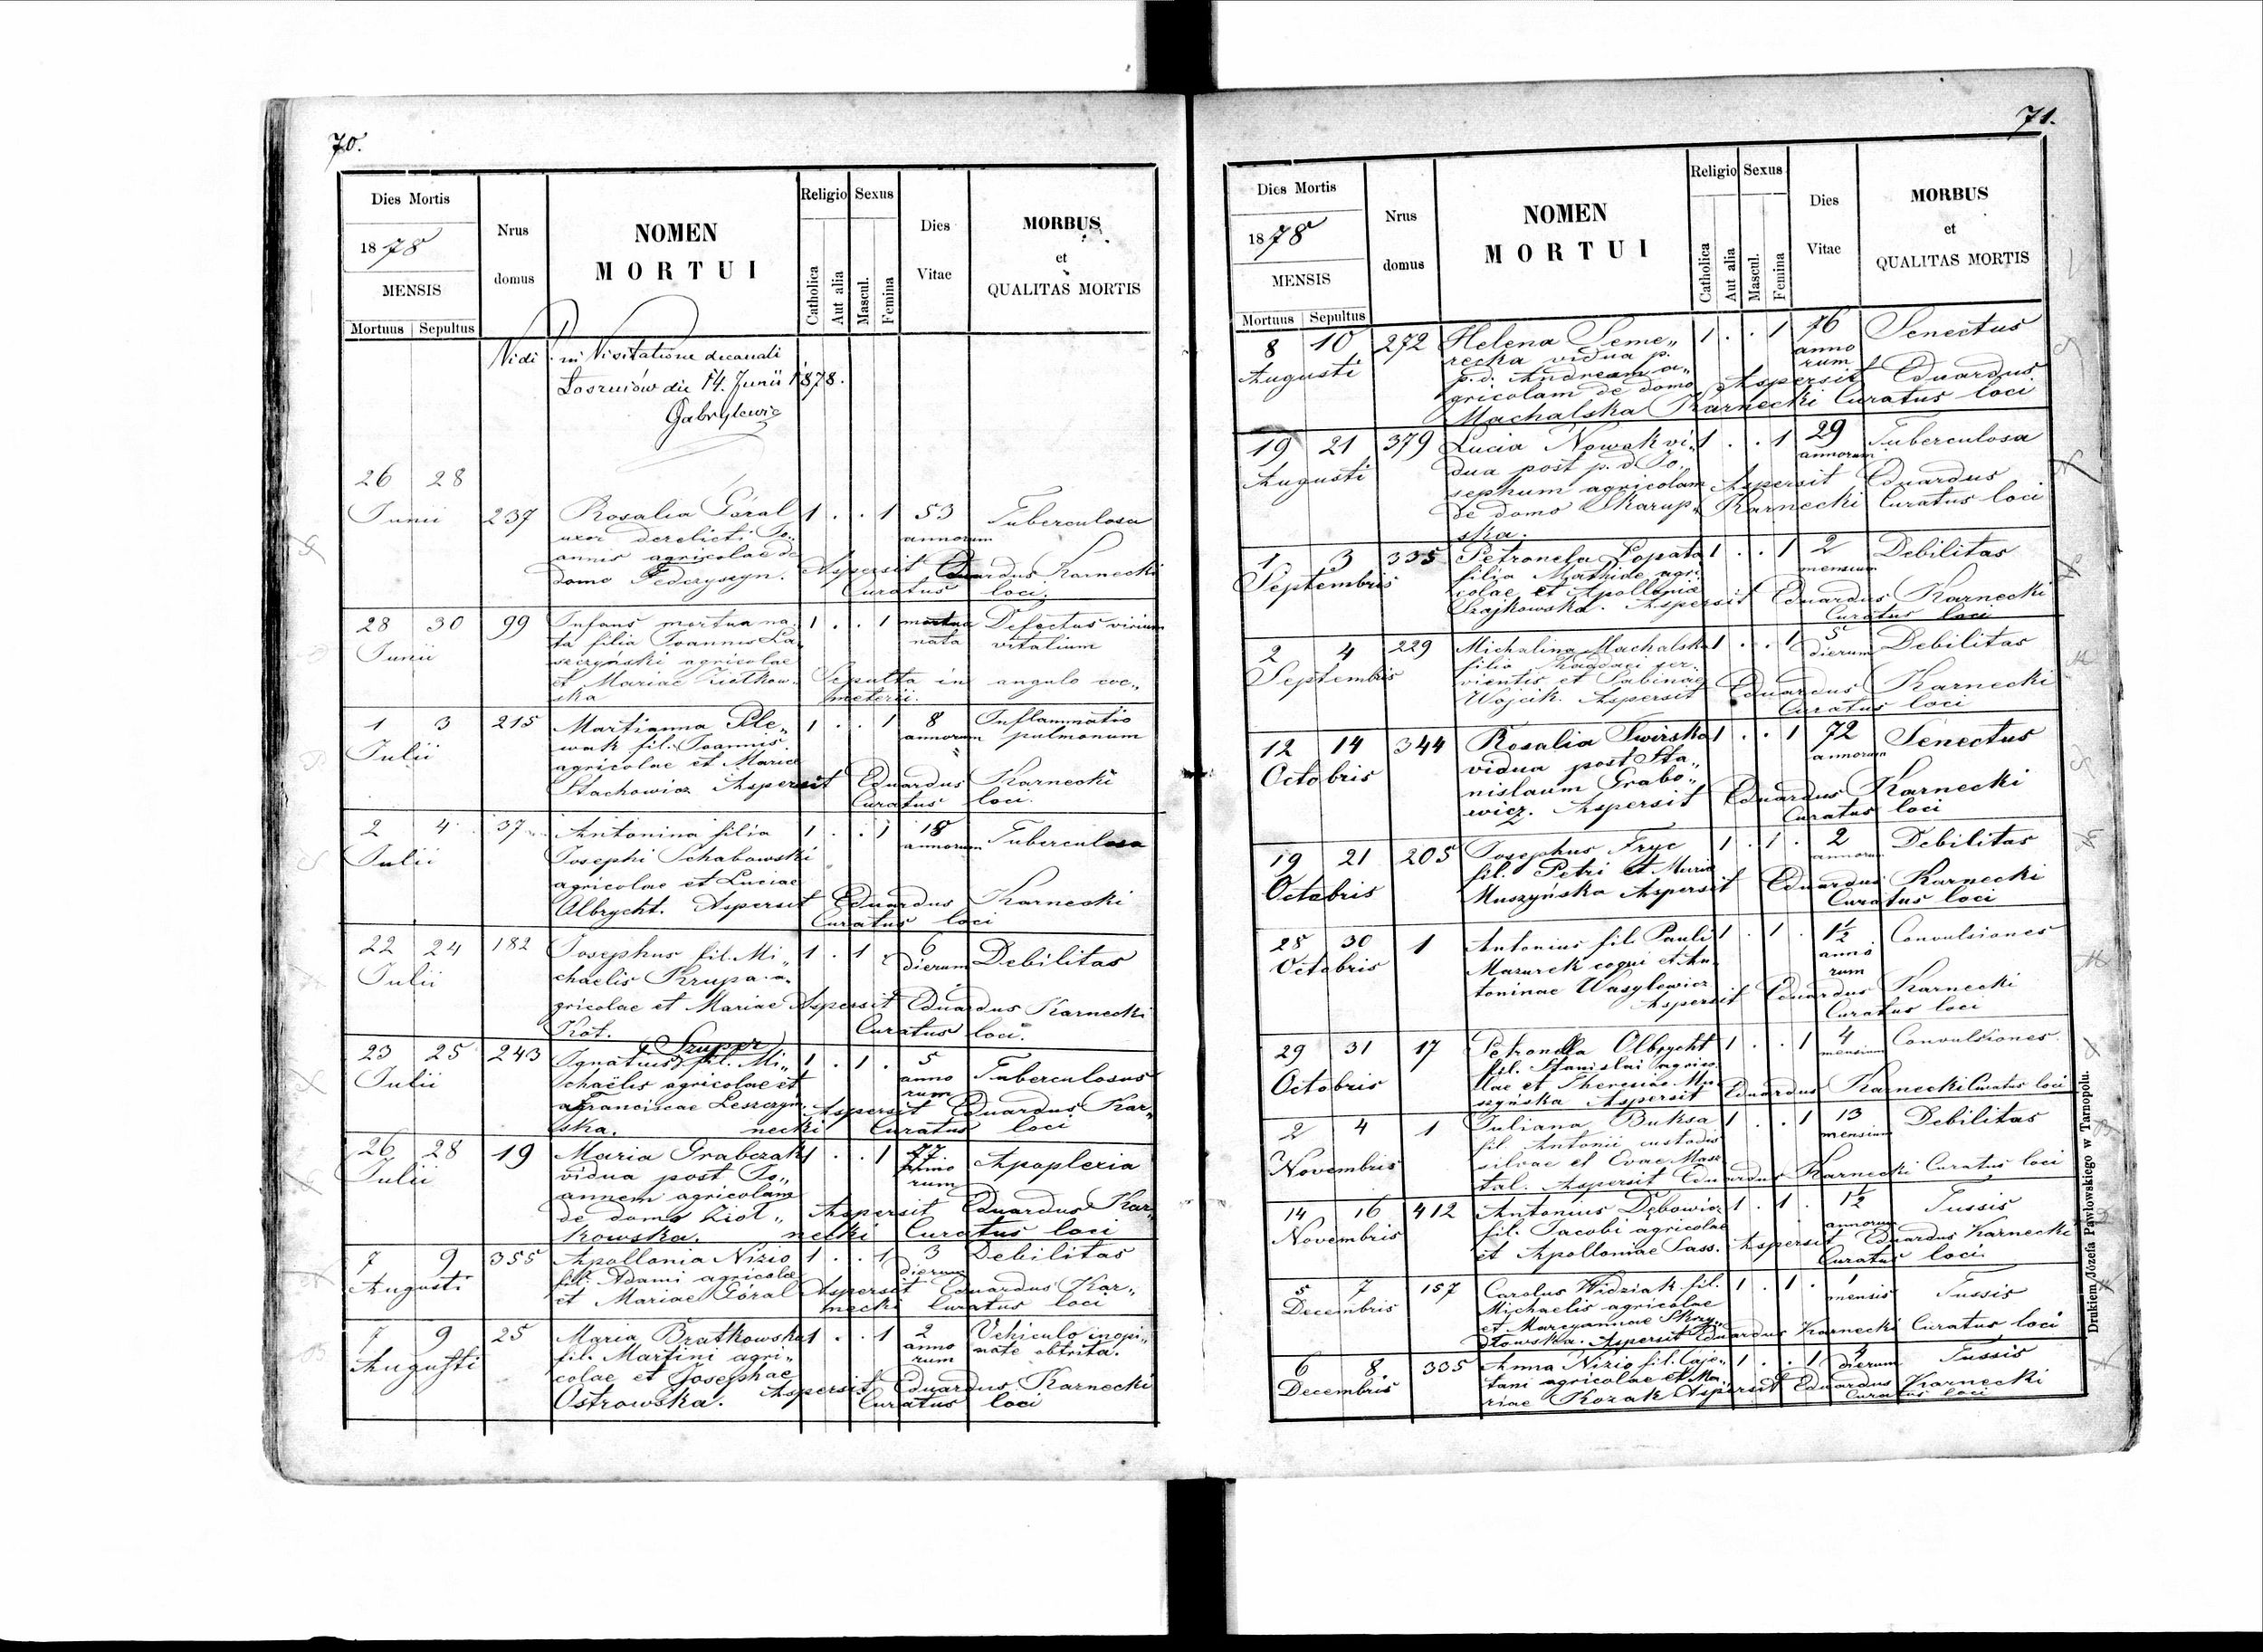 70.
Dies Mortis
1878
MENSIS
Mortuus Sepultus
Nrus domus
NOMEN MORTUI
Religio
Catholica
Aut alia
Sexus
Mascul.
Femina
Dies Vitae
MORBUS et QUALITAS MORTIS
Vidi in Visitatione decanali
Łosniów die 14. Junii 1878.
Gabrylewicz
26 28
Junii 237 Rosalia Góral 1 . . 1 53 Tuberculosa
uxor derelicti Jo„ annorum
annis agricolae de
domo Fedczyszyn. Aspersit Eduardus Karnecki
Curatus loci.
28 30 99 Infans mortua na„ 1 . . 1 mortua Defectus virium
Junii ta filia Joannis La„ nata vitalium
szczyński agricolae
et Mariae Ziółkow„ Sepulta in angulo coe„
ska meterii.
1 3 215 Martianna Ple„ 1 . . 1 8 Inflammatio
Julii wak fil. Joannis annorum pulmonum
agricolae et Mariae
Stachowicz Aspersit Eduardus Karnecki
Curatus loci.
2 4 37 Antonina filia 1 . . 1 18 Tuberculosa
Julii Josephi Schabowski annorum
agricolae et Luciae
Olbrycht. Aspersit Eduardus Karnecki
Curatus loci
22 24 182 Josephus fil. Mi„ 1 . 1 . 6 Debilitas
Julii chaelis Krupa a„ dierum
gricolae et Mariae Aspersit Eduardus Karnecki
Kot. Curatus loci.
Szuper
23 25 243 Ignatius fil. Mi„ 1 . 1 . 5 Tuberculosus
Julii chaëlis agricolae et anno
Franciscae Leszczyń„ rum Aspersit Eduardus Kar„
ska. necki Curatus loci
26 28 19 Maria Grabczak 1 . . 1 77 Apoplexia
Julii vidua post Jo„ anno
annem agricolam rum
de domo Ziół„ Aspersit Eduardus Kar„
kowska. necki Curatus loci
7 9 355 Apollonia Nizio 1 . . 1 3 Debilitas
Augusti fil. Adami agricolae dierum
et Mariae Góral Aspersit Eduardus Kar„
necki Curatus loci
7 9 25 Maria Bratkowska 1 . . 1 2 Vehiculo inopi„
Augusti fil. Martini agri„ anno nate obtrita.
colae et Josephae rum
Ostrowska. Aspersit Eduardus Karnecki
Curatus loci
71.
Dies Mortis
1878
MENSIS
Mortuus Sepultus
Nrus domus
NOMEN MORTUI
Religio
Catholica
Aut alia
Sexus
Mascul.
Femina
Dies Vitae
MORBUS et QUALITAS MORTIS
8 10 272 Helena Seme„ 1 . . 1 76 Senectus
Augusti recka vidua p. anno
p. d. Andream a„ rum
gricolam de domo Aspersit Eduardus
Machalska Karnecki Curatus loci
19 21 379 Lucia Nowak vi„ 1 . . 1 29 Tuberculosa
Augusti dua post p. d. Jo„ annorum
sephum agricolam Aspersit Eduardus
de domo Skarup„ Karnecki Curatus loci
ska.
1 3 335 Petronela Łopata 1 . . 1 2 Debilitas
Septembris filia Mathide agri mensium
colae et Apollonia
Szajkowska. Aspersit Eduardus Karnecki
Curatus loci
2 4 229 Michalina Machalska 1 . . 1 5 Debilitas
Septembris filia ser„ dierum
vientis et Sabinae
Wojcik. Aspersit Eduardus Karnecki
Curatus loci
12 14 344 Rosalia Swirska 1 . . 1 72 Senectus
Octobris vidua post Sta„ annorum
nislaum Grabo„
wicz. Aspersit Eduardus Karnecki
Curatus loci
19 21 205 Josephus Fryc 1 . 1 . 2 Debilitas
Octobris fil. Petri et Maria annorum
Muszyńska Aspersit Eduardus Karnecki
Curatus loci
28 30 1 Antonius fil. Pauli 1 . 1 . 1½ Convulsiones
Octobris Mazurek coqui et An„ anno
toninae Wasylewicz rum
Aspersit Eduardus Karnecki
Curatus loci
29 31 17 Petronella Olbrycht 1 . . 1 4 Convulsiones
Octobris fil. Stanislai agrico mensium
lae et Theresiae Mu„
szyńska Aspersit Eduardus Karnecki Curatus loci
2 4 1 Juliana Buksa 1 . . 1 13 Debilitas
Novembris fil. Antonii custodis mensium
silvae et Evae Masz
tal. Aspersit Eduardus Karnecki Curatus loci
14 16 412 Antonius Dębowicz 1 . 1 . 1½ Tussis
Novembris fil. Jacobi agricolae annorum
et Apolloniae Sass. Aspersit Eduardus Karnecki
Curatus loci.
5 7 157 Carolus Widziak fil. 1 . 1 . 1 Tussis
Decembris Michaelis agricolae mensis
et Marcyannae Skrzy„
dłowska. Aspersit Eduardus Karnecki Curatus loci
6 8 335 Anna Nizio fil. Caje„ 1 . . 1 dierum Tussis
Decembris tani agricolae et Ma„
riae Kozak Aspersit Eduardus Karnecki
Curatus loci
Drukiem Józefa Pawłowskiego w Tarnopolu.